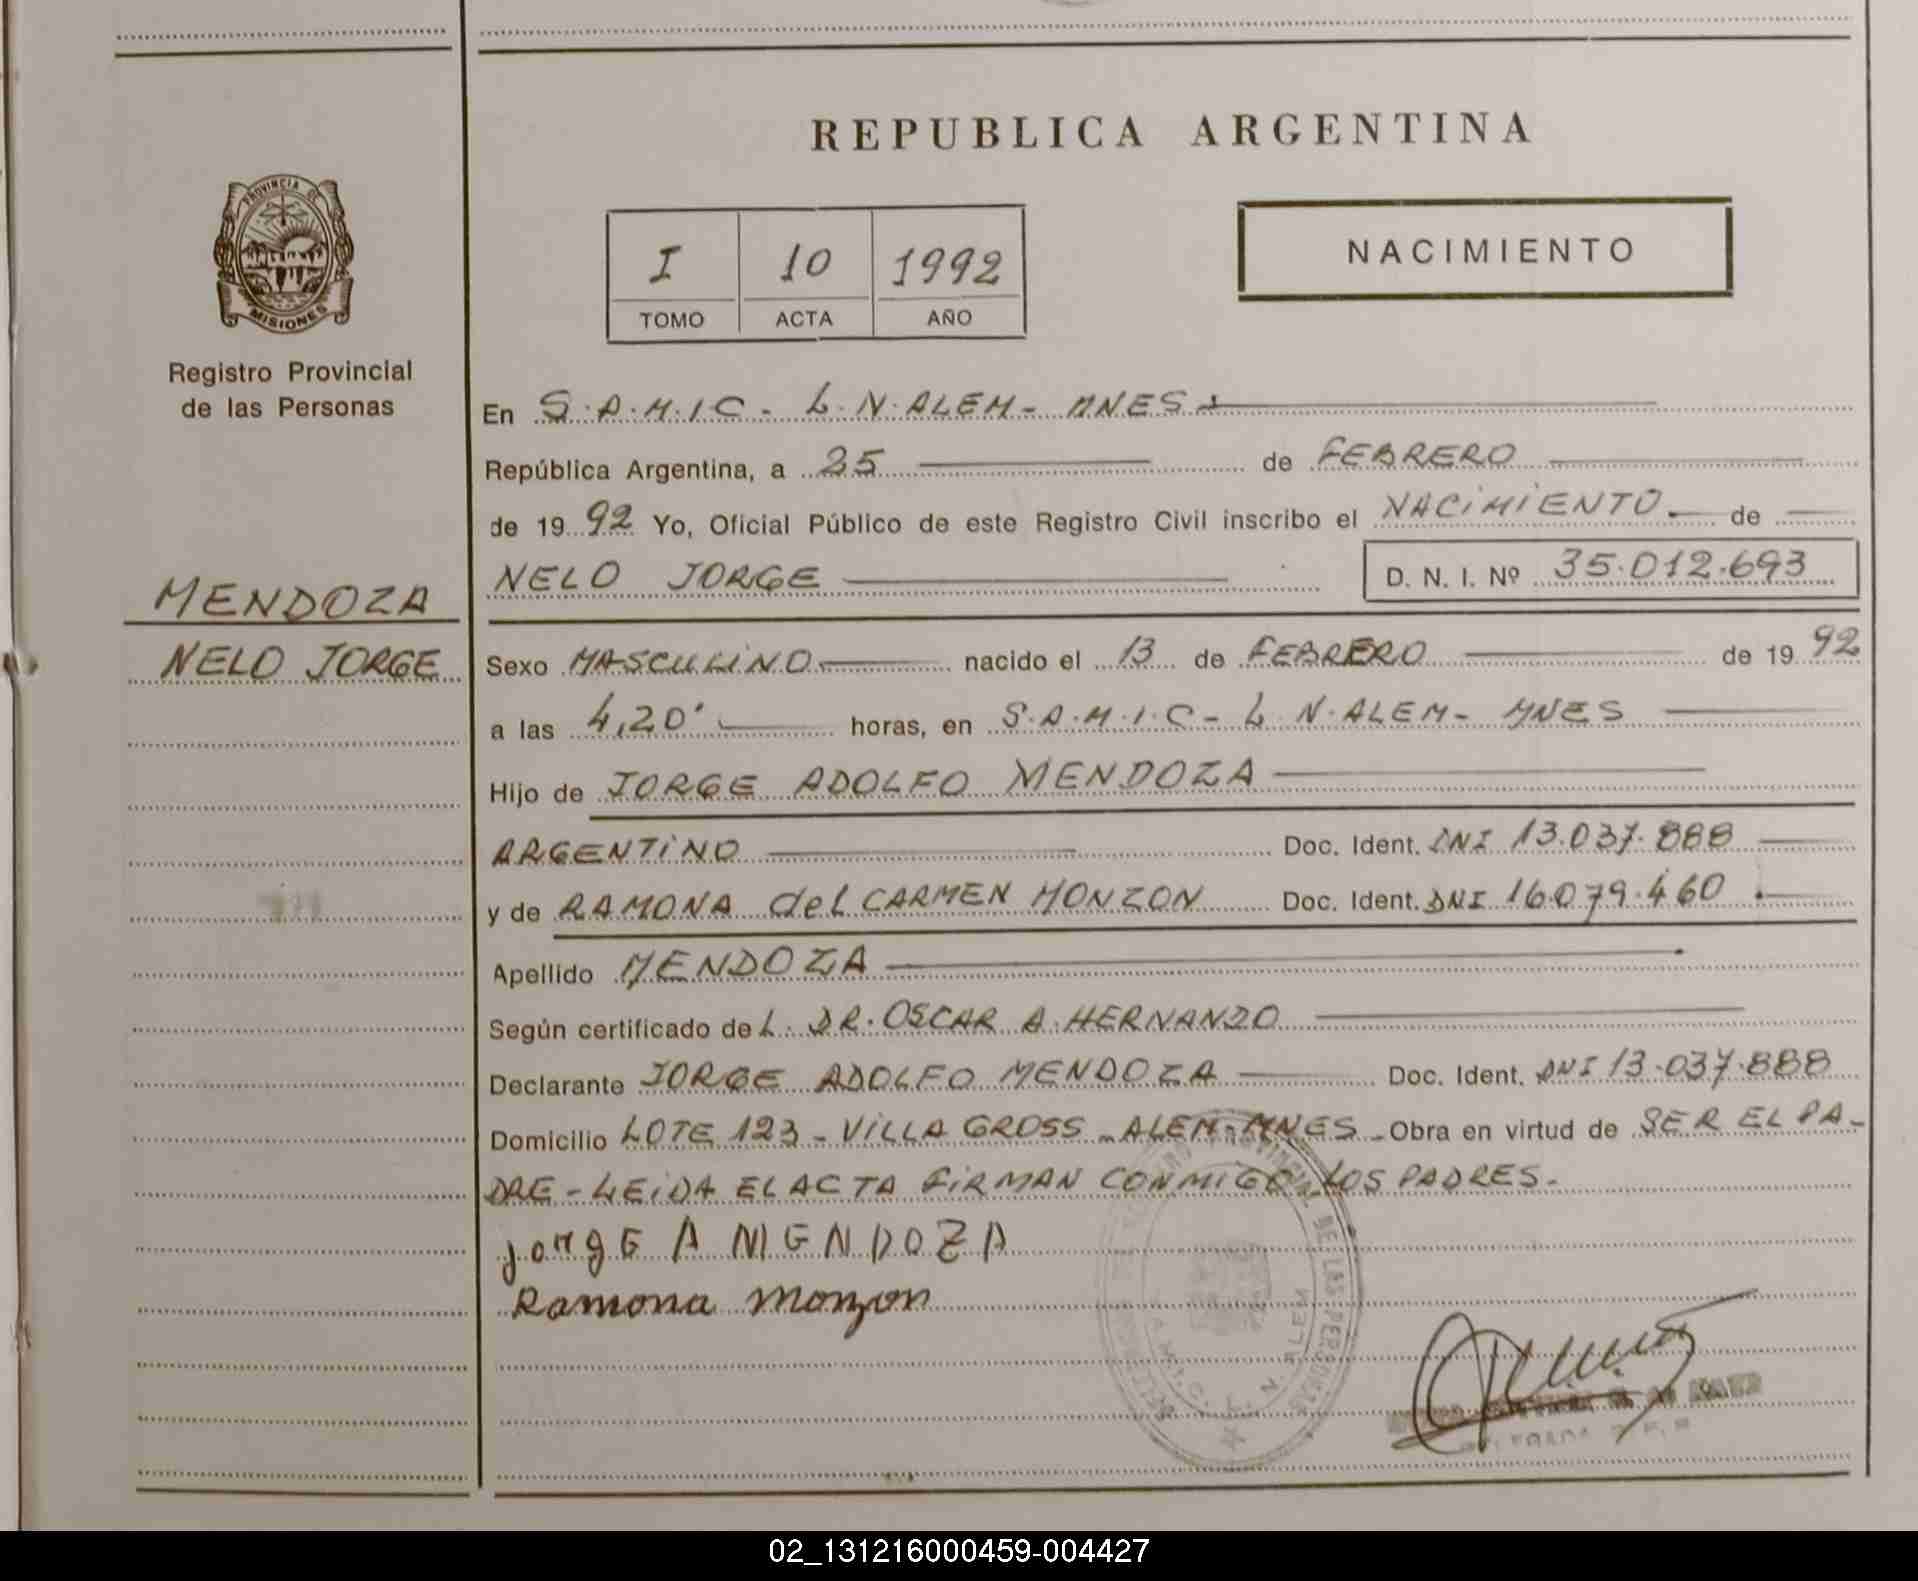 REPUBLICA ARGENTINA
PROVINCIA DE
MISIONES
Registro Provincial
de las Personas
I 10 1992
TOMO ACTA AÑO
NACIMIENTO
En S.A.M.I.C - L.N.ALEM - MNES
República Argentina, a 25 de FEBRERO
de 1992 Yo, Oficial Público de este Registro Civil inscribo el NACIMIENTO. de
NELO JORGE D. N. I. Nº 35.012.693
MENDOZA
NELO JORGE
Sexo MASCULINO nacido el 13 de FEBRERO de 1992
a las 4,20' horas, en S.A.M.I.C - L.N.ALEM - MNES
Hijo de JORGE ADOLFO MENDOZA
ARGENTINO Doc. Ident. DNI 13.037.888
y de RAMONA del CARMEN MONZON Doc. Ident. DNI 16.079.460.
Apellido MENDOZA
Según certificado del. DR. OSCAR A. HERNANDO
Declarante JORGE ADOLFO MENDOZA Doc. Ident. DNI 13.037.888
Domicilio LOTE 123 - VILLA GROSS - ALEM - MNES - Obra en virtud de SER EL PA-
DRE - LEIDA EL ACTA FIRMAN CONMIGO LOS PADRES.-
jorgE A MENDOZA
Ramona Monzon
PROVINCIAL DE LAS PERSONAS
S.A.M.I.C. L. N. ALEM
02_131216000459-004427